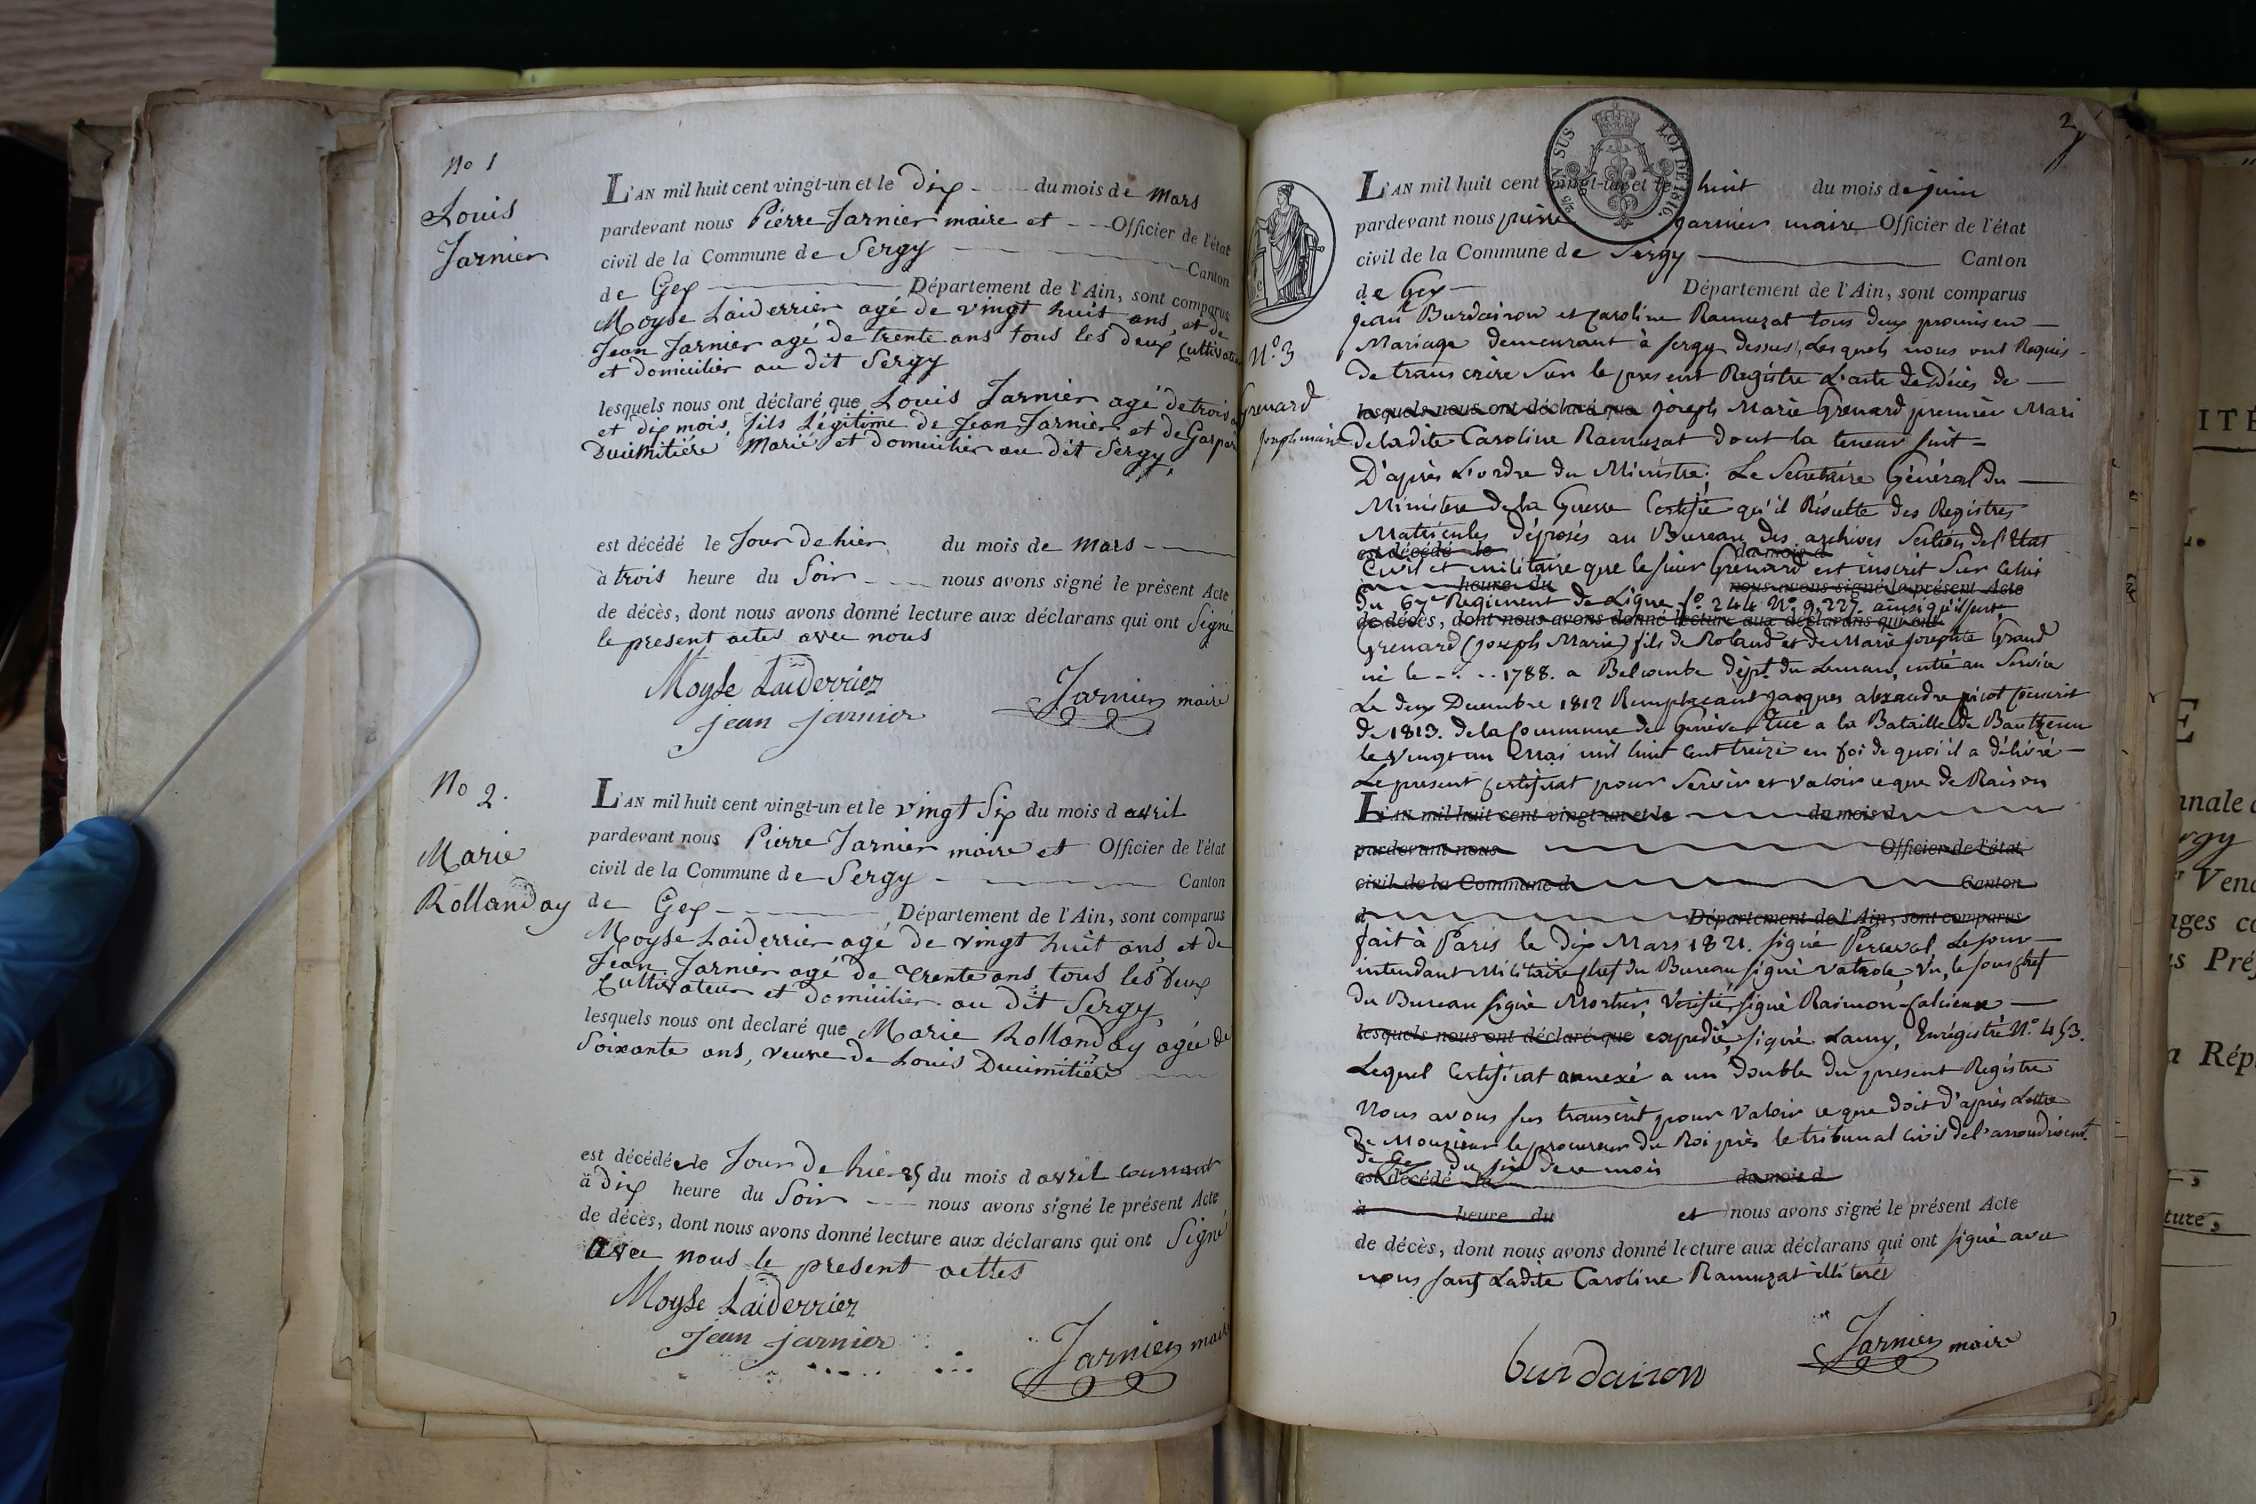 No 1
Louis
Jarnier
L'AN mil huit cent vingt-un et le dix du mois de mars
pardevant nous Pierre Jarnier maire et Officier de l'état
civil de la Commune de Sergy Canton
de Gex Département de l'Ain, sont comparus
Moyse Laiderrier agé de vingt huit ans, et de
Jean Jarnier agé de trente ans tous les deux Cultivateu
et domicilier au dit Sergy
lesquels nous ont déclaré que Louis Jarnier agé de trois
et dix mois, fils Légitime de Jean Jarnier et de Gaspar
Ducimitière Marié et domicilier au dit Sergy,
est décédé le Jour de hier du mois de mars
à trois heure du Soir nous avons signé le présent Acte
de décès, dont nous avons donné lecture aux déclarans qui ont Signé
le present actes avec nous
Moyse Laiderrier
jean jarnier
Jarnier maire
No 2.
Marie
Rollanday
L'AN mil huit cent vingt-un et le vingt Six du mois d avril
pardevant nous Pierre Jarnier maire et Officier de l'état
civil de la Commune de Sergy Canton
de Gex Département de l'Ain, sont comparus
Moyse Laiderrier agé de vingt huit ans, et de
Jean Jarnier agé de trente ans, tous les deux
Cultivateur et domicilier au dit Sergy,
lesquels nous ont declaré que Marie Rollanday agée de
Soixante ans, veuve de Louis Ducimitière
est décédée le Jour de hier 25 du mois d avril courrant
à dix heure du Soir nous avons signé le présent Acte
de décès, dont nous avons donné lecture aux déclarans qui ont Signé
avec nous le present acttes
Moyse Laiderrier
jean jarnier
Jarnier maire
2
EN SUS
LOI DE 1816.
L'AN mil huit cent vingt-un et le huit du mois de juin
pardevant nous pierre jarnier maire Officier de l'état
civil de la Commune de Sergy Canton
de Gex Département de l'Ain, sont comparus
jean Burdairon et Caroline Ramuzat tous deux promis en
Mariage demeurant à Sergy dessus, Lesquels nous ont Requis
de transcrire Sur le present Registre L'acte de décès de
No. 3
Grenard
Joseph marie
lesquels nous ont déclaré que joseph Marie Grenard premier Mari
de ladite Caroline Ramuzat dont la teneur suit
D'après L'ordre du Ministre; Le Secretaire Général du
Ministere de la Guerre Certifie qu'il Résulte des Registres
Matricules déposés au Bureau des archives Section de l'Etat
est décédé le du mois d
Civil et militaire que le sieur Grenard est inscrit Sur Celui
à heure du nous avons signé le présent Acte
du 67e Regiment de Ligne fo. 244 No. 9,227. ainsi qu'il suit
de décès, dont nous avons donné lecture aux déclarans qui ont
Grenard (joseph Marie) fils de Roland et de Marie josephte Grand
né le 1788. a Belcombe dépt. du Leman, entré au Service
Le deux Decembre 1812 Remplacant jacques alexandre picot Conscrit
de 1813. de la Commune de Genève Tué a la Bataille de Bautzenn
le vingt un Mai mil huit cent treize en foi de quoi il a délivré
Le present Certificat pour Servir et valoir ce que de Raison
L'AN mil huit cent vingt-un et le du mois d
pardevant nous Officier de l'état
civil de la Commune d Canton
d Département de l'Ain, sont comparus
fait à Paris le dix Mars 1821. signé Perceval Le sous
intendant Militaire Chef du Bureau signé Vu, le sous chef
du Bureau signé Mortier, Vérifié signé
lesquels nous ont déclaré que expedié, signé Lamy, Enrégistré No. 453.
Lequel Certificat annexé a un double du present Registre
Nous avons sus transcrit pour Valoir ce que doit d'après Lettre
de Monsieur le procureur du Roi près le tribunal Civil de l'arrondissent
de Gex du six de ce mois
est décédé la du mois d
à heure du et nous avons signé le présent Acte
de décès, dont nous avons donné lecture aux déclarans qui ont signé avec
nous sauf Ladite Caroline Ramuzat illiterée
burdairon
Jarnier maire